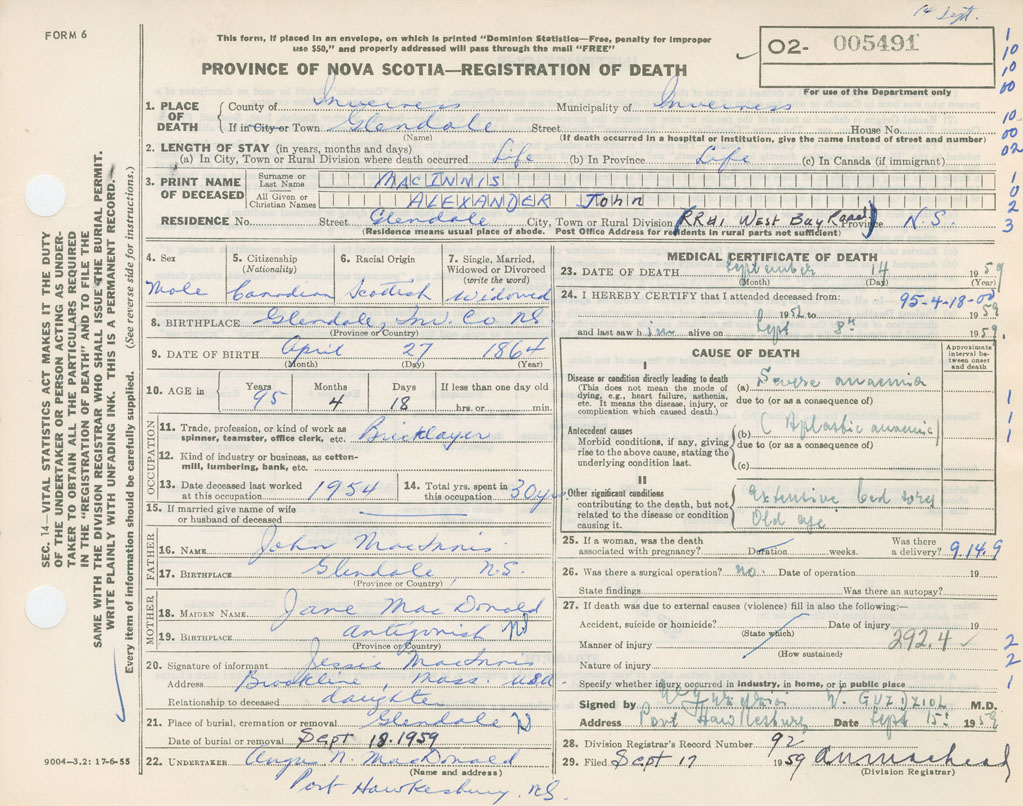 14 Sept.
FORM 6
This form, if placed in an envelope, on which is printed "Dominion Statistics—Free, penalty for improper
use $50," and properly addressed will pass through the mail "FREE"
O2- 005491
For use of the Department only
PROVINCE OF NOVA SCOTIA—REGISTRATION OF DEATH
1. PLACE OF DEATH
County of Inverness Municipality of Inverness
If in City or Town Glendale Street House No.
(Name) (If death occurred in a hospital or institution, give the name instead of street and number)
2. LENGTH OF STAY (in years, months and days)
(a) In City, Town or Rural Division where death occurred Life (b) In Province Life (c) In Canada (if immigrant)
3. PRINT NAME OF DECEASED
Surname or Last Name MACINNIS
All Given or Christian Names ALEXANDER John
RESIDENCE No. Street Glendale City, Town or Rural Division (RR#1 West Bay Road) Province N.S.
(Residence means usual place of abode. Post Office Address for residents in rural parts not sufficient)
4. Sex Male
5. Citizenship (Nationality) Canadian
6. Racial Origin Scottish
7. Single, Married, Widowed or Divorced (write the word) Widowed
8. BIRTHPLACE Glendale, Inv. Co NS
(Province or Country)
9. DATE OF BIRTH April 27 1864
(Month) (Day) (Year)
10. AGE in Years 95 Months 4 Days 18 If less than one day old hrs. or min.
OCCUPATION
11. Trade, profession, or kind of work as spinner, teamster, office clerk, etc. Bricklayer
12. Kind of industry or business, as cotton-mill, lumbering, bank, etc.
13. Date deceased last worked at this occupation 1954
14. Total yrs. spent in this occupation 30 yrs
15. If married give name of wife or husband of deceased
FATHER
16. NAME John MacInnis
17. BIRTHPLACE Glendale N.S.
(Province or Country)
MOTHER
18. MAIDEN NAME Jane MacDonald
19. BIRTHPLACE Antigonish NS
(Province or Country)
20. Signature of informant Jessie MacInnis
Address Brookline, Mass. USA
Relationship to deceased daughter
21. Place of burial, cremation or removal Glendale NS
Date of burial or removal Sept 18. 1959
22. UNDERTAKER Angus N. MacDonald
(Name and address)
Port Hawkesbury. NS.
9004—3.2: 17-6-55
MEDICAL CERTIFICATE OF DEATH
23. DATE OF DEATH September 14 1959
(Month) (Day) (Year)
24. I HEREBY CERTIFY that I attended deceased from: 95-4-18-00
1952 to 1959
and last saw him alive on Sept 8th 1959
CAUSE OF DEATH
Approximate interval between onset and death
I
Disease or condition directly leading to death
(This does not mean the mode of dying, e.g., heart failure, asthenia, etc. It means the disease, injury, or complication which caused death.)
(a) Severe anaemia
due to (or as a consequence of)
Antecedent causes
Morbid conditions, if any, giving rise to the above cause, stating the underlying condition last.
(b) (Aplastic anaemia)
due to (or as a consequence of)
(c)
II
Other significant conditions contributing to the death, but not related to the disease or condition causing it.
Extensive bed sores
Old age
25. If a woman, was the death associated with pregnancy? Duration weeks. Was there a delivery? 9.14.9
26. Was there a surgical operation? no. Date of operation 19
State findings Was there an autopsy?
27. If death was due to external causes (violence) fill in also the following:—
Accident, suicide or homicide? Date of injury 19
(State which)
Manner of injury 292.4
(How sustained)
Nature of injury
Specify whether injury occurred in industry, in home, or in public place
Signed by W. GUZDZIOL M.D.
Address Port Hawkesbury Date Sept 15th 1959
28. Division Registrar's Record Number 92
29. Filed Sept 17 1959
(Division Registrar)
SEC. 14—VITAL STATISTICS ACT MAKES IT THE DUTY
OF THE UNDERTAKER OR PERSON ACTING AS UNDER-
TAKER TO OBTAIN ALL THE PARTICULARS REQUIRED
IN THE "REGISTRATION OF DEATH" AND TO FILE THE
SAME WITH THE DIVISION REGISTRAR WHO SHALL ISSUE THE BURIAL PERMIT.
WRITE PLAINLY WITH UNFADING INK. THIS IS A PERMANENT RECORD.
Every item of information should be carefully supplied. (See reverse side for instructions.)
1
10
10
00
10
00
02
10
2
3
1
1
1
2
2
1